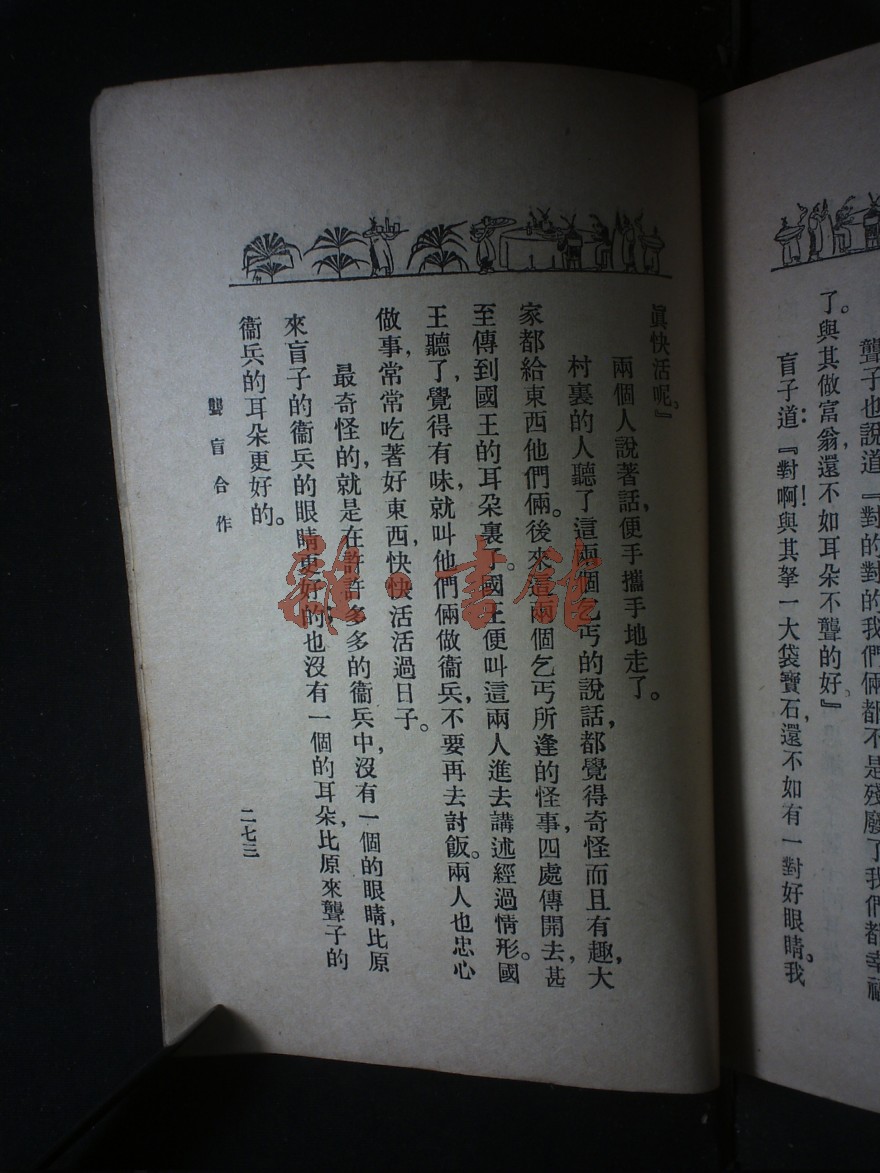 聾子也說道『對的對的我們倆都不是殘廢了我們都幸福
了。與其做富翁還不如耳朵不聾的好。』
盲子道：『對啊！與其拏一大袋寶石，還不如有一對好眼睛。我
眞快活呢。』
兩個人說著話，便手攜手地走了。
村裏的人聽了這兩個乞丐的說話，都覺得奇怪而且有趣，大
家都給東西他們倆。後來這兩個乞丐所逢的怪事，四處傳開去，甚
至傳到國王的耳朶裏了。國王便叫這兩人進去講述經過情形。國
王聽了，覺得有味，就叫他們倆做衞兵，不要再去討飯。兩人也忠心
做事，常常吃著好東西，快快活活過日子。
最奇怪的，就是在許許多多的衞兵中，沒有一個的眼睛，比原
來盲子的衞兵的眼睛更好的；也沒有一個的耳朶，比原來聾子的
衞兵的耳朶更好的。
聾盲合作
二七三
雜·書館